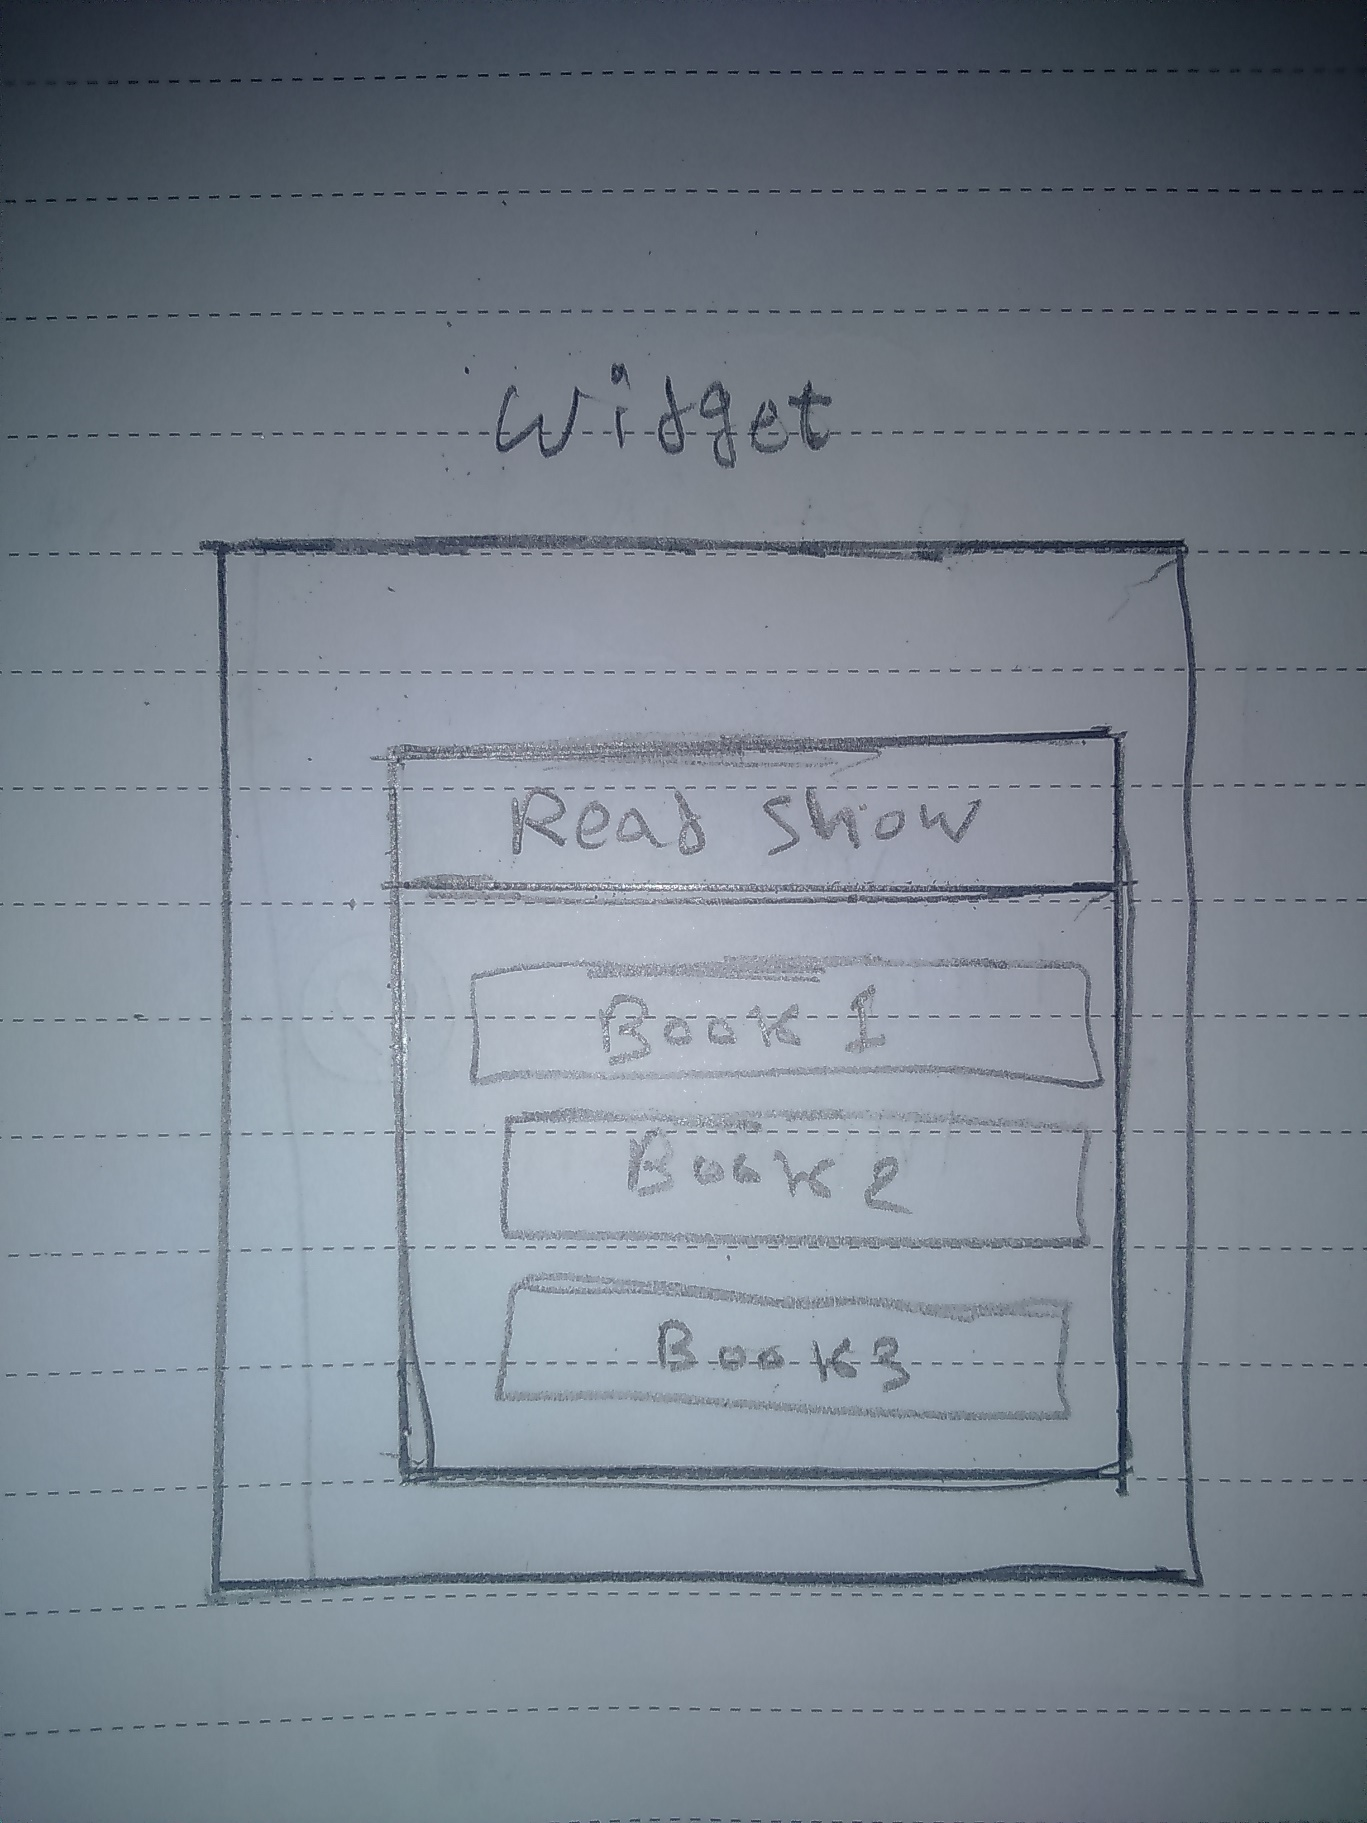 Widget
Read Show
Book 1
Book 2
Book 3